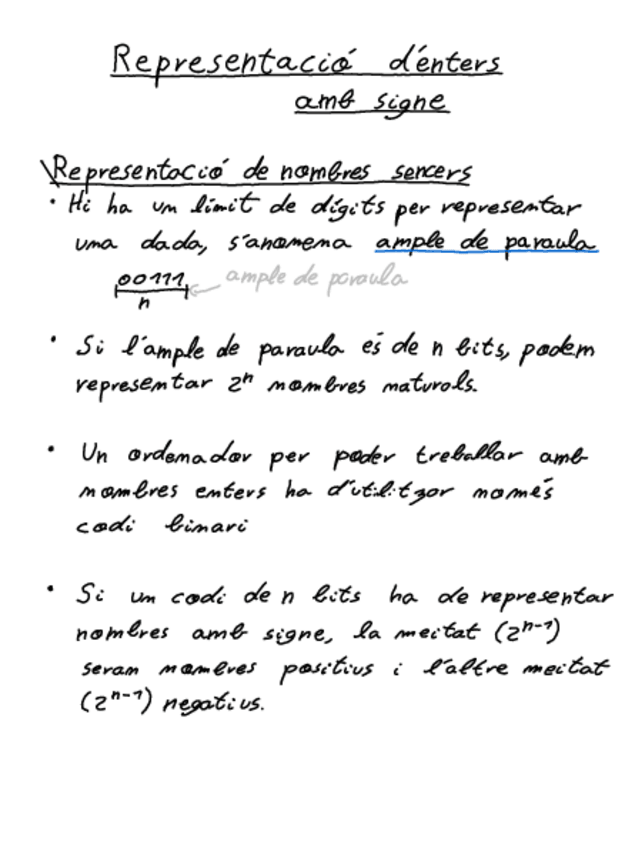 Representació d'enters
amb signe
Representació de nombres sencers
• Hi ha un límit de dígits per representar
una dada, s'anomena ample de paraula
00111 ample de paraula
n
• Si l'ample de paraula és de n bits, podem
representar 2ⁿ nombres naturals.
• Un ordenador per poder treballar amb
nombres enters ha d'utilitzar només
codi binari
• Si un codi de n bits ha de representar
nombres amb signe, la meitat (2ⁿ⁻¹)
seran nombres positius i l'altre meitat
(2ⁿ⁻¹) negatius.